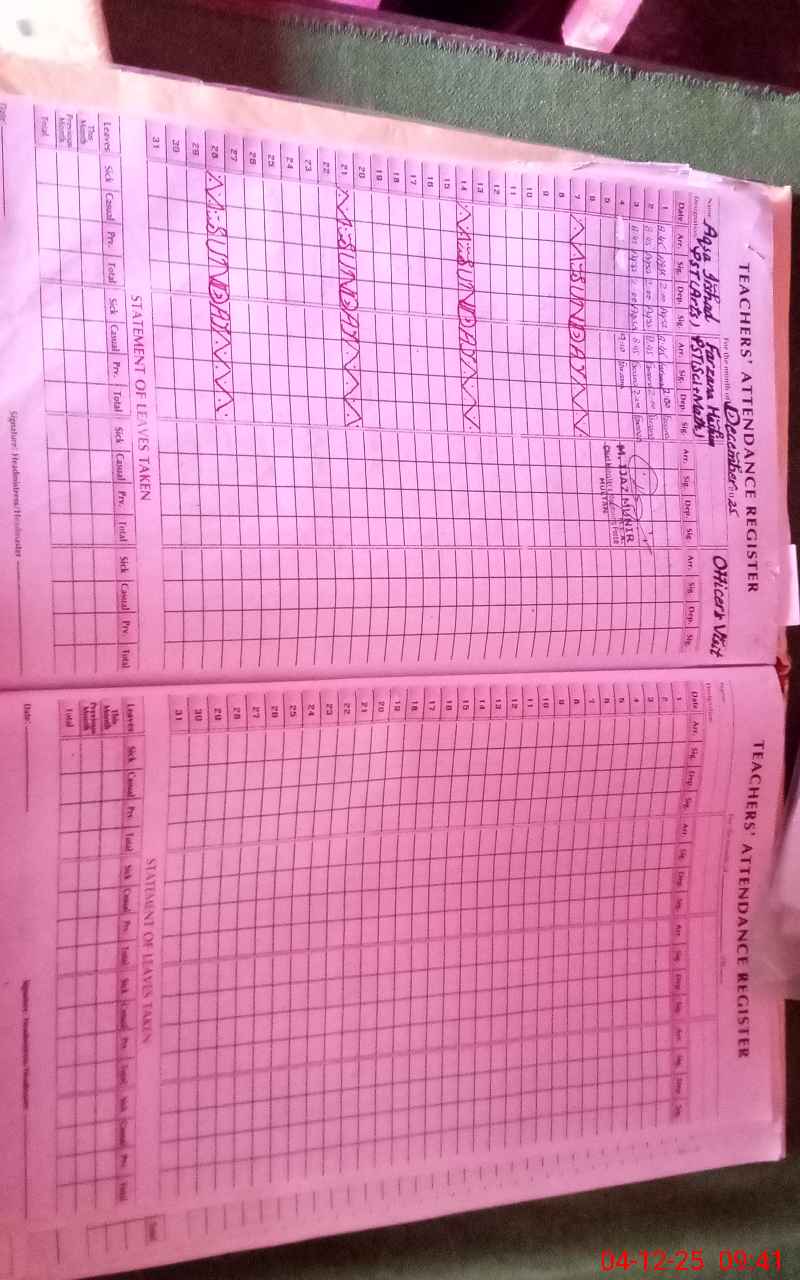 TEACHERS' ATTENDANCE REGISTER
For the month of December 2025
Name Aqsa Irshad Farzana Hakim Officer's Visit
Designation PST(Arts) PST(Sci+Math)
Date Arr. Sig. Dep. Sig. Arr. Sig. Dep. Sig. Arr. Sig. Dep. Sig. Arr. Sig. Dep. Sig.
1 8.45 Aqsa 2.00 Aqsa 8.45 Farzana 2.00 Farzana
2 8.45 Aqsa 2.00 Aqsa 8.45 Farzana 2.00 Farzana
3 8.45 Aqsa 2.00 Aqsa 8.45 Farzana 2.00 Farzana
4 Farzana M. IJAZ MUNIR
5 MULTAN
6
7 SUNDAY
8
9
10
11
12
13
14 SUNDAY
15
16
17
18
19
20
21 SUNDAY
22
23
24
25
26
27
28 SUNDAY
29
30
31
STATEMENT OF LEAVES TAKEN
Leaves Sick Casual Prv. Total Sick Casual Prv. Total Sick Casual Prv. Total Sick Casual Prv. Total
This Month
Previous Month
Total
Date
Signature: Headmistress/Headmaster
TEACHERS' ATTENDANCE REGISTER
Designation
Date Arr. Sig. Dep. Sig. Arr. Sig. Dep. Sig. Arr. Sig. Dep. Sig. Arr. Sig. Dep. Sig.
1
2
3
4
5
6
7
8
9
10
11
12
13
14
15
16
17
18
19
20
21
22
23
24
25
26
27
28
29
30
31
STATEMENT OF LEAVES TAKEN
Leaves Sick Casual Prv. Total Sick Casual Prv. Total Sick Casual Prv. Total Sick Casual Prv. Total
This Month
Previous Month
Total
Date:
Signature: Headmistress/Headmaster
04-12-25 09:41